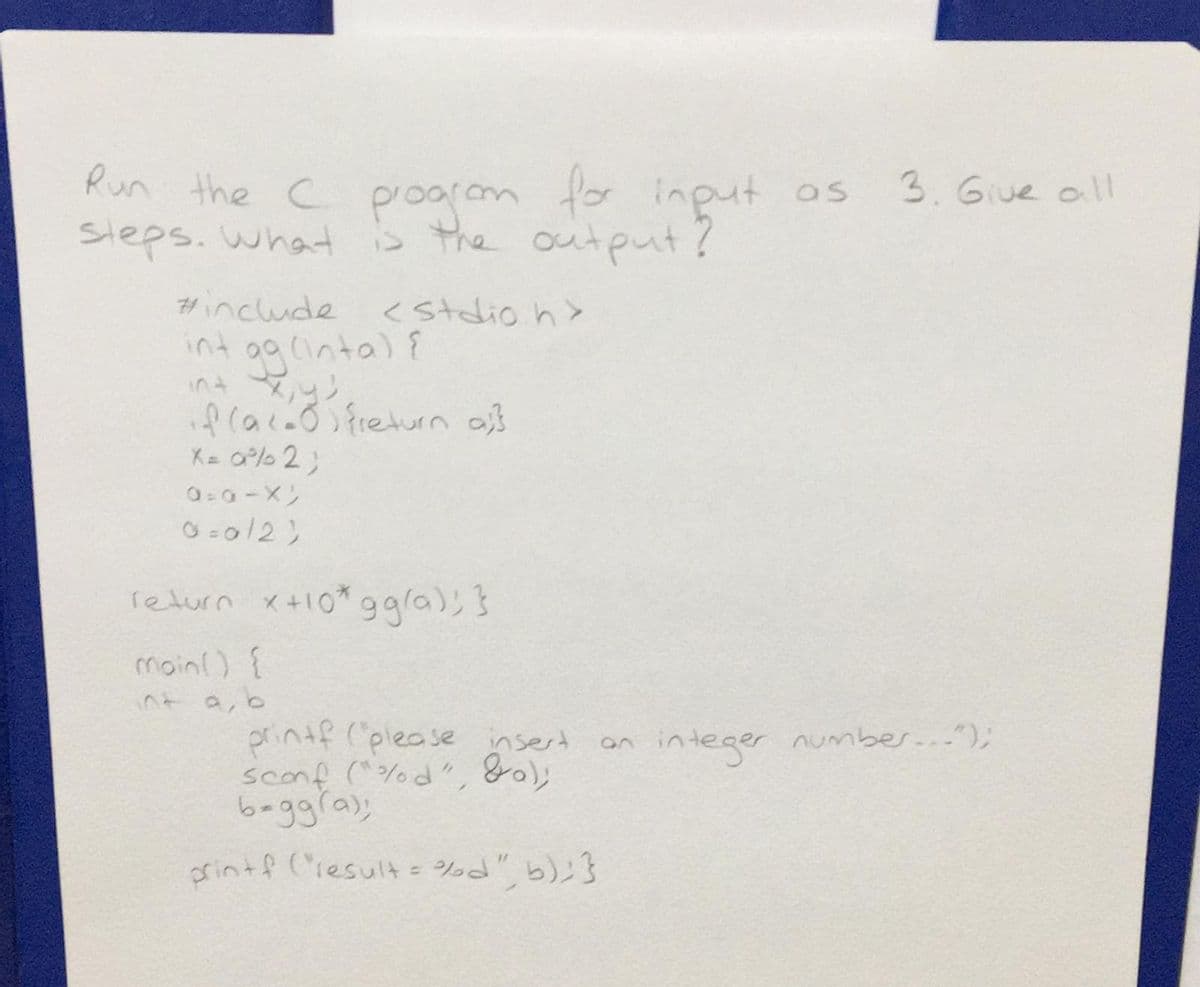 Run the C program for input as 3. Give all
steps. What is the output?
#include <stdio h>
int gg(inta) {
int x,y;
if(a<=0){return a;}
x= a%2;
a=a-x;
a=a/2;
return x+10*gg(a);}
main() {
int a,b
printf ("please insert an integer number...");
scanf ("%d", &a);
b=gg(a);
printf ("result = %d", b);}